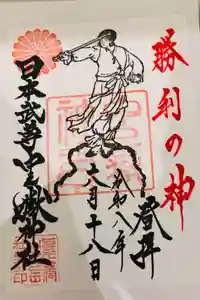 勝利の神
登拝
令和八年
六月十八日
日本武尊中之嶽神社